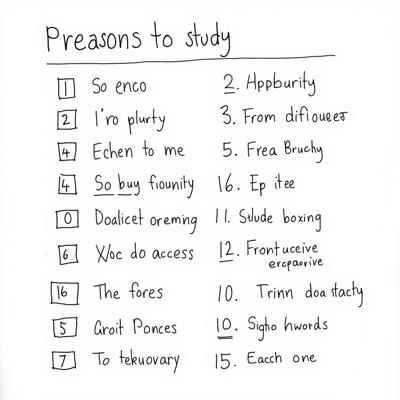 Preasons to study
1 So enco
2. Hppburity
2 I'ro plurty
3. From difioueez
4 Echen to me
5. Frea Bruchy
4 So buy fiounity
16. Ep itee
0 Doalicet oreming
11. Stlude boxing
6 X/oc do access
12. Frontuceive
ercpaorive
16 The fores
10. Trinn doa stacty
5 Groit Ponces
10. Sigho hwords
7 To tekuovary
15. Eacch one